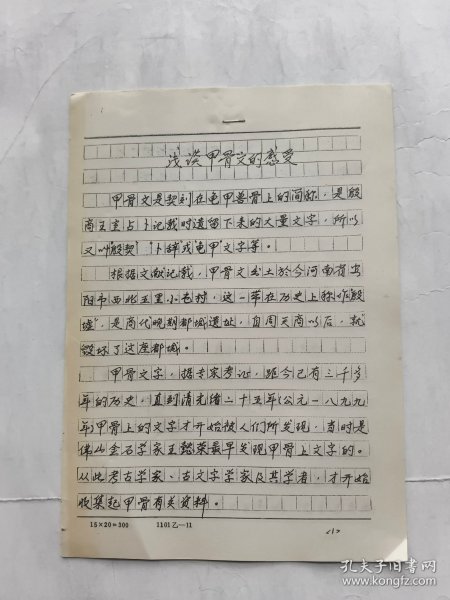 浅谈甲骨文的感受
甲骨文是契刻在龟甲兽骨上的简称，是殷
商王室占卜记载时遗留下来的大量文字，所以
又叫"殷契"、卜辞或龟甲文字等。
根据文献记载，甲骨文出土於今河南省安
阳市西北五里小屯村，这一带在历史上称作"殷
墟"，是商代晚期都城遗址，自周灭商以后，就
毁坏了这座都城。
甲骨文字，据专家考证，距今已有三千多
年的历史，直到清光绪二十五年（公元一八九九
年）甲骨上的文字才开始被人们所发现，当时是
佛山金石学家王懿荣最早发现甲骨上文字的。
从此考古学家、古文字学家及其学者，才开始
收集起甲骨有关资料。
15×20=300 1101乙—11
〈1〉
孔夫子旧书网
www.kongfz.com